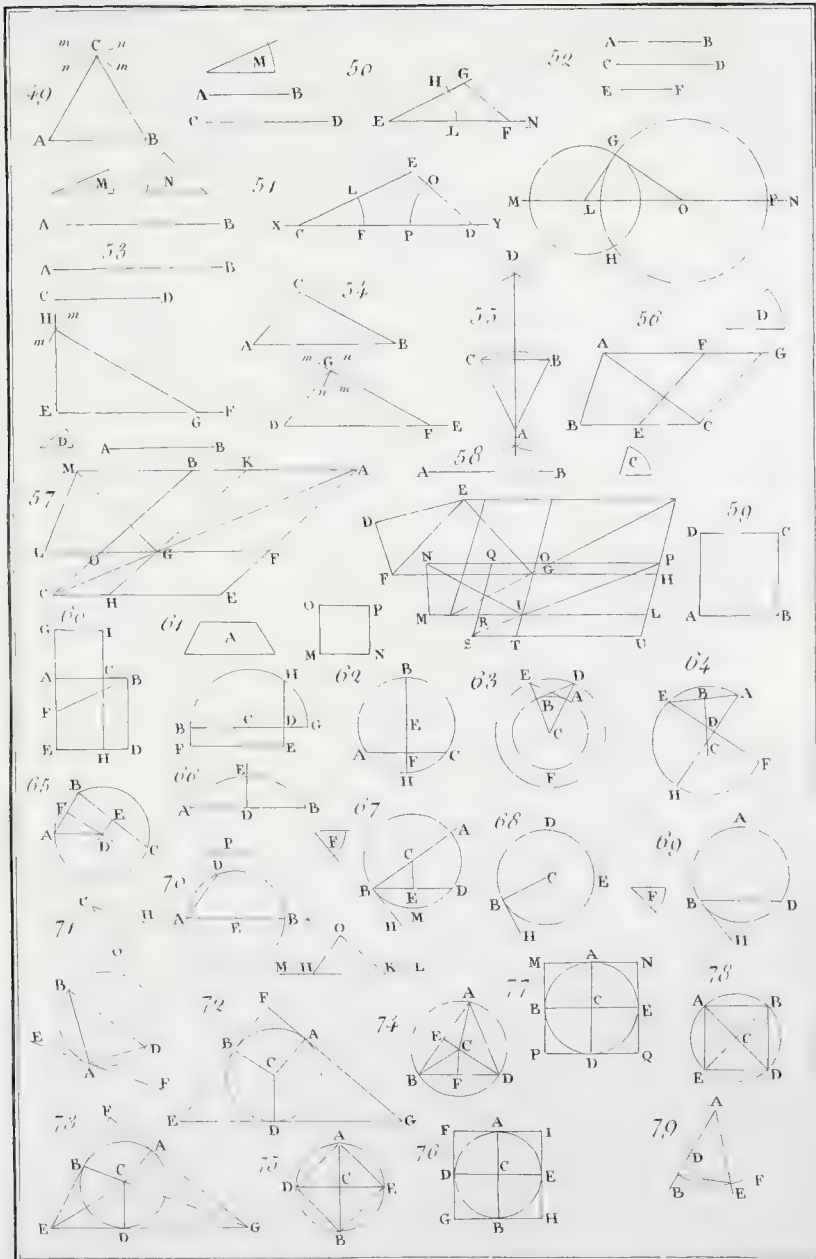 49
m C n
n m
A B
M
A B
C D
50
H G
E L F N
52
A B
C D
E F
G
M L O P N
H
M N
A B
51
E
L O
X C F P D Y
53
A B
C D
H m
m
E G F
54
C
A B
m G n
n m
D F E
55
D
C B
A
56
D
A F G
B E C
57
D A B
M B K A
L O G F
C H E
58
A B
C
E
D
N Q O P
F G H
M R I L
S T U
59
D C
A B
60
G I
A C B
F
E H D
61
A
O P
M N
H
B C D G
F E
62
B
E
A F C
H
63
E D
B A
C
F
64
E B A
D
C
F
H
65
B
F E
A D C
66
E
A D B
67
F
A
C
B E D
H M
68
D
C
B E
H
69
F
A
B D
H
70
P
D
A E B
71
C H
O
B
E D
A F
O
M H K L
72
F
B A
C
E D G
73
F
A
B C
E D G
74
A
E
C
B F D
75
A
C
D E
B
76
F A I
D C E
G B H
77
M A N
B C E
P D Q
78
A B
C
E D
79
A
D
B E F